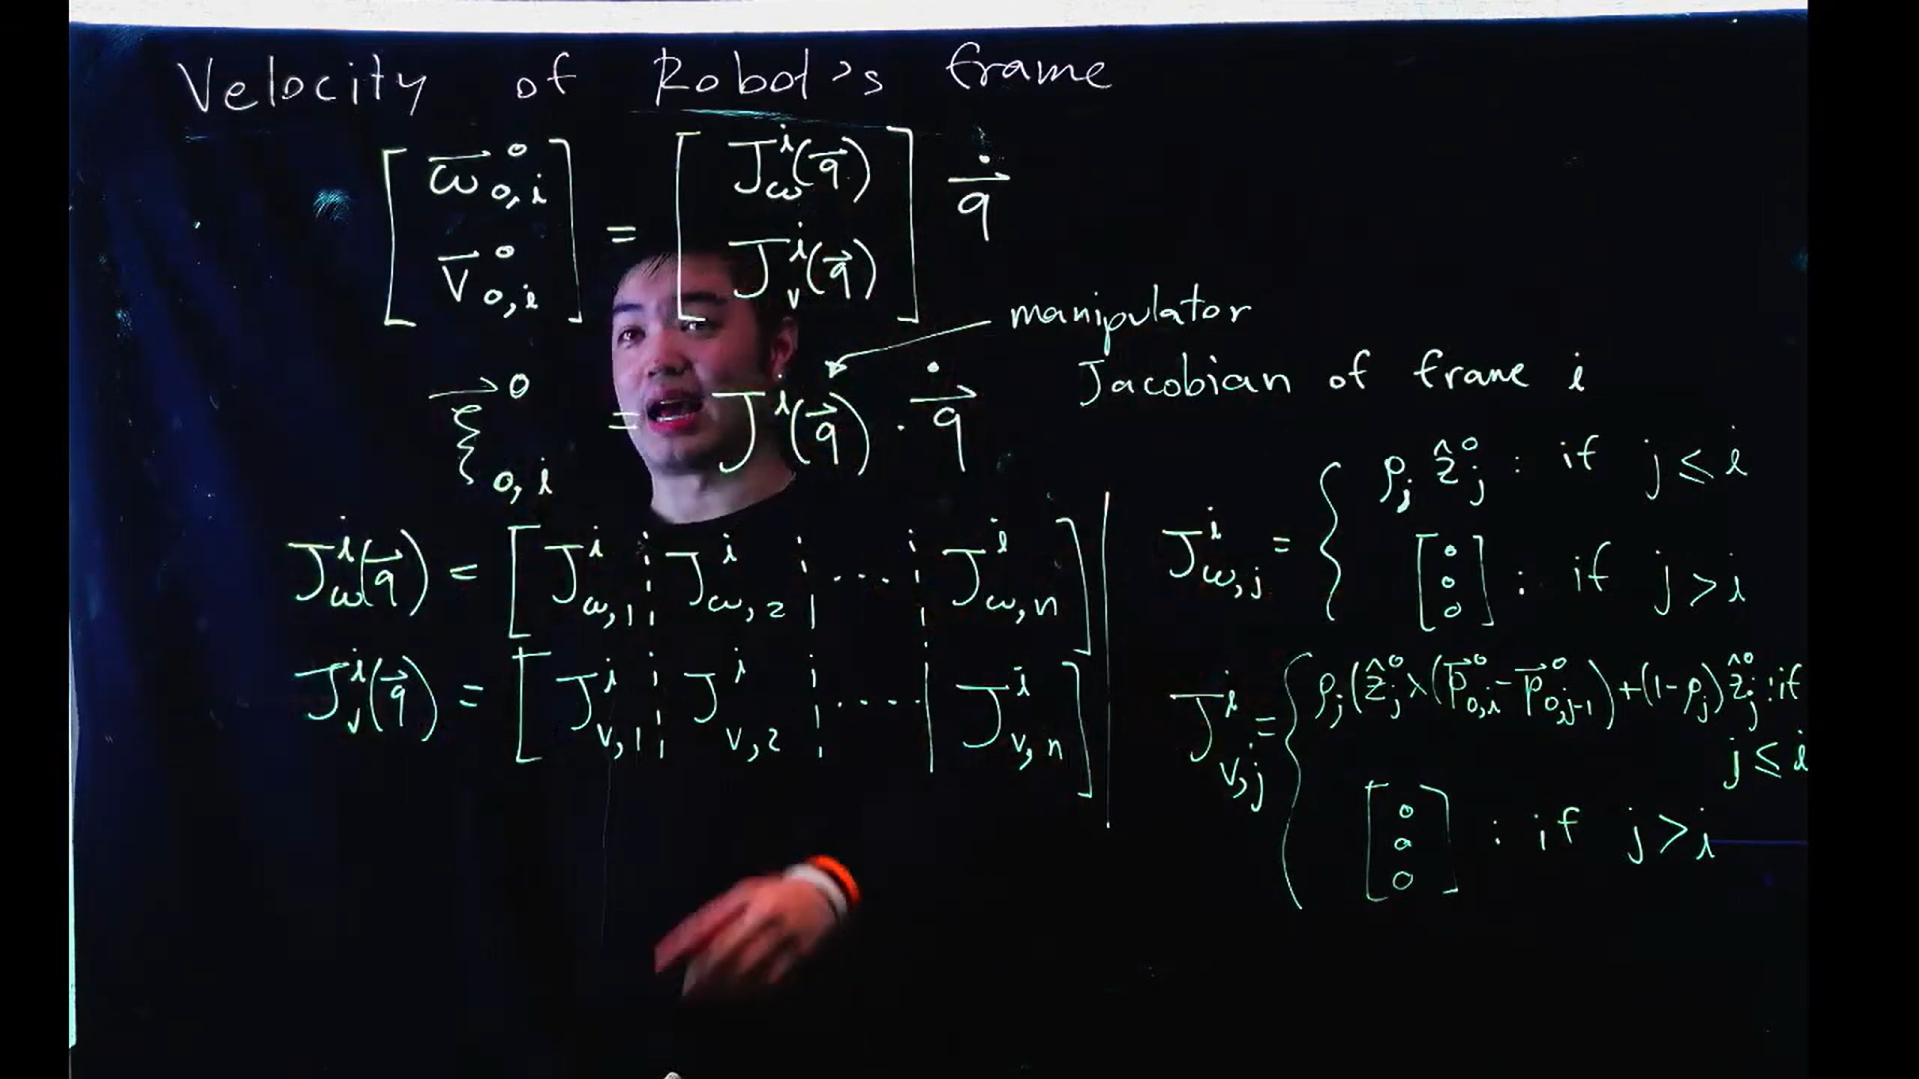 Velocity of Robot's frame
[ω⃗⁰₀,ᵢ ; v⃗⁰₀,ᵢ] = [J^i_ω(q⃗) ; J^i_v(q⃗)] q⃗̇
manipulator
Jacobian of frame i
ξ⃗⁰₀,ᵢ = J^i(q⃗) · q⃗̇
J^i_ω(q⃗) = [J^i_ω,1 ¦ J^i_ω,2 ¦ .... ¦ J^i_ω,n]
J^i_v(q⃗) = [J^i_v,1 ¦ J^i_v,2 ¦ ..... | J^i_v,n]
J^i_ω,j = { ρ_j ẑ⁰_j : if j ≤ i
[0 0 0] : if j > i
J^i_v,j = { ρ_j(ẑ⁰_j × (p⃗⁰_0,i − p⃗⁰_0,j-1) + (1-ρ_j) ẑ⁰_j : if
j ≤ i
[0 0 0] : if j > i